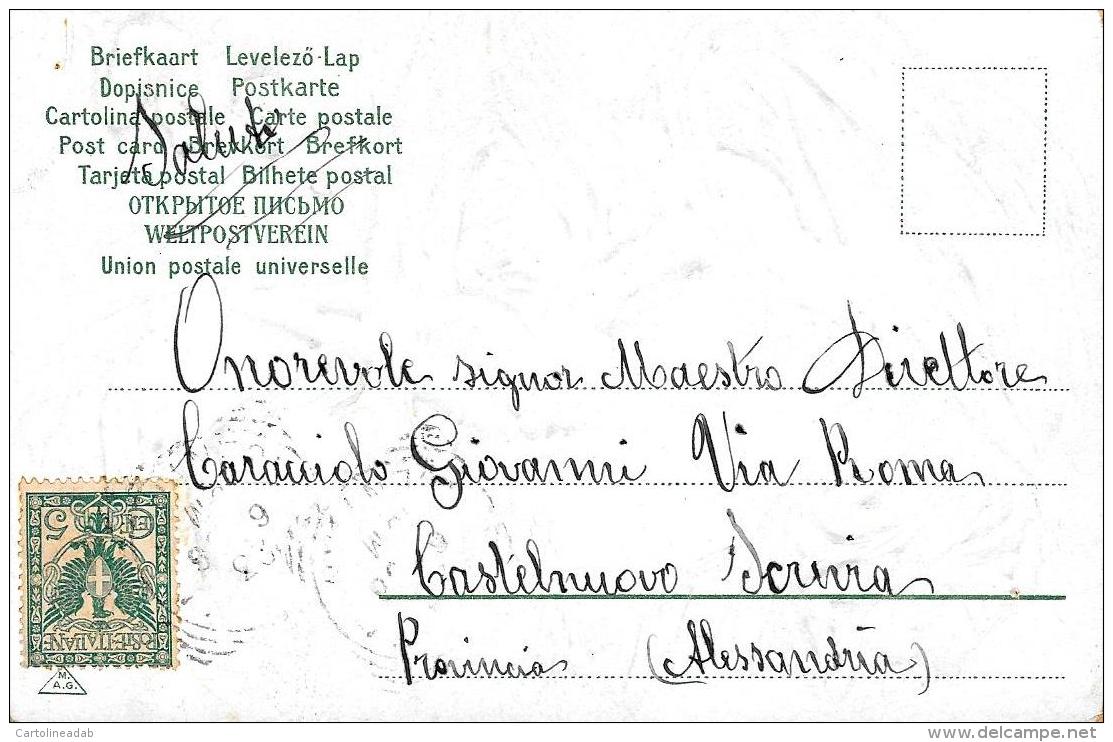 Briefkaart Levelező-Lap
Dopisnice Postkarte
Cartolina postale Carte postale
Post card Brevkort Brefkort
Tarjeta postal Bilhete postal
ОТКРЫТОЕ ПИСЬМО
WELTPOSTVEREIN
Union postale universelle
Saluti
Onorevole signor Maestro Direttore
Caracciolo Giovanni Via Roma
Castelnuovo Scrivia
Provincia (Alessandria)
CENT. 5
POSTE·ITALIANE
M.
A.G.
Cartolineadab
www.delcampe.net